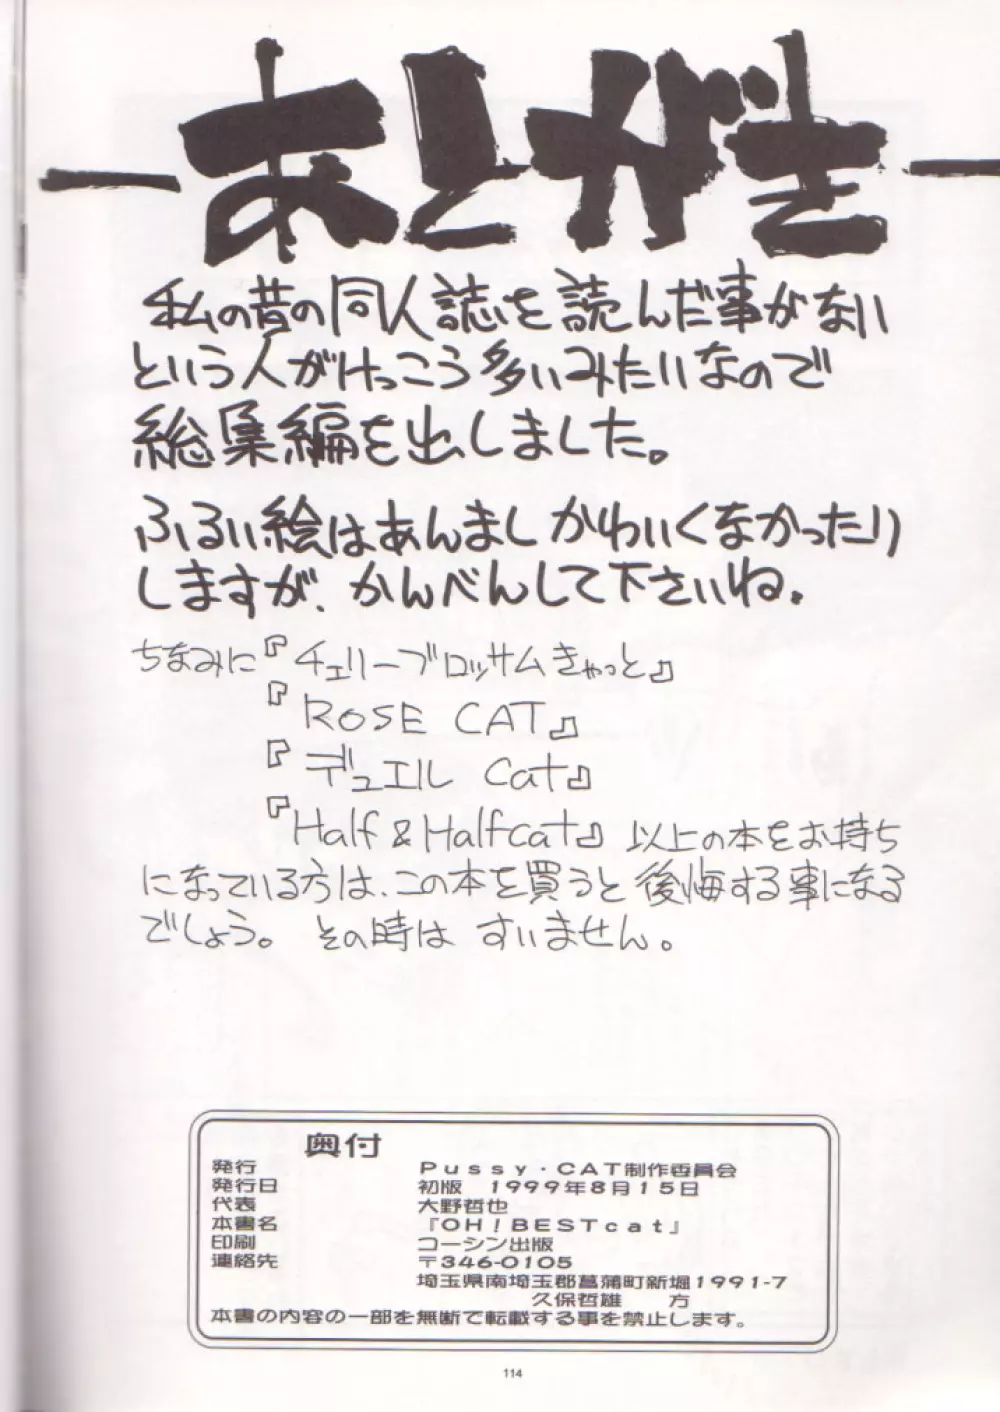 あとがき
私の昔の同人誌を読んだ事がない
という人がけっこう多いみたいなので
総集編を出しました。
ふるい絵はあんましかわいくなかったり
しますが、かんべんして下さいね。
ちなみに『チェリーブロッサムきゃっと』
『ROSE CAT』
『デュエル Cat』
『Half & Halfcat』以上の本をお持ち
になっている方は、この本を買うと後悔する事になる
でしょう。その時は すいません。
奥付
発行 Pussy・CAT制作委員会
発行日 初版 1999年8月15日
代表 大野哲也
本書名 『OH!BESTcat』
印刷 コーシン出版
連絡先 〒346-0105
埼玉県南埼玉郡菖蒲町新堀1991-7
久保哲雄 方
本書の内容の一部を無断で転載する事を禁止します。
114